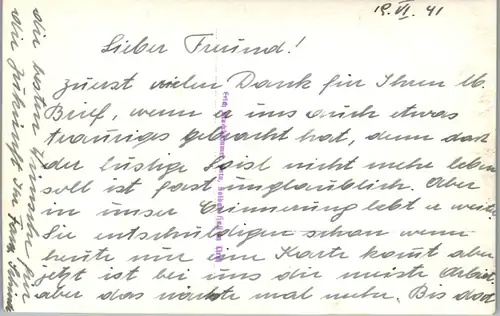 19. VI. 41
Lieber Freund!
zuerst vielen Dank für Ihren lb.
Brief, wenn er uns auch etwas
trauriges gebracht hat, denn dass
der lustige Loisl nicht mehr leben
soll ist fast unglaublich. Aber
in unser Erinnerung lebt er weiter
Sie entschuldigen schon wenn
heute nur eine Karte komt aber
jetzt ist bei uns die meiste Arbeit
aber das nächste mal mehr. Bis dort
die besten Wünsche für
die Zukunft Ihr